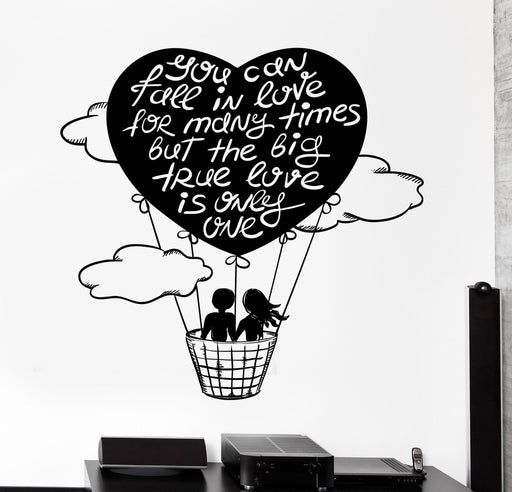 you can
fall in love
for many times
but the big
true love
is only
one